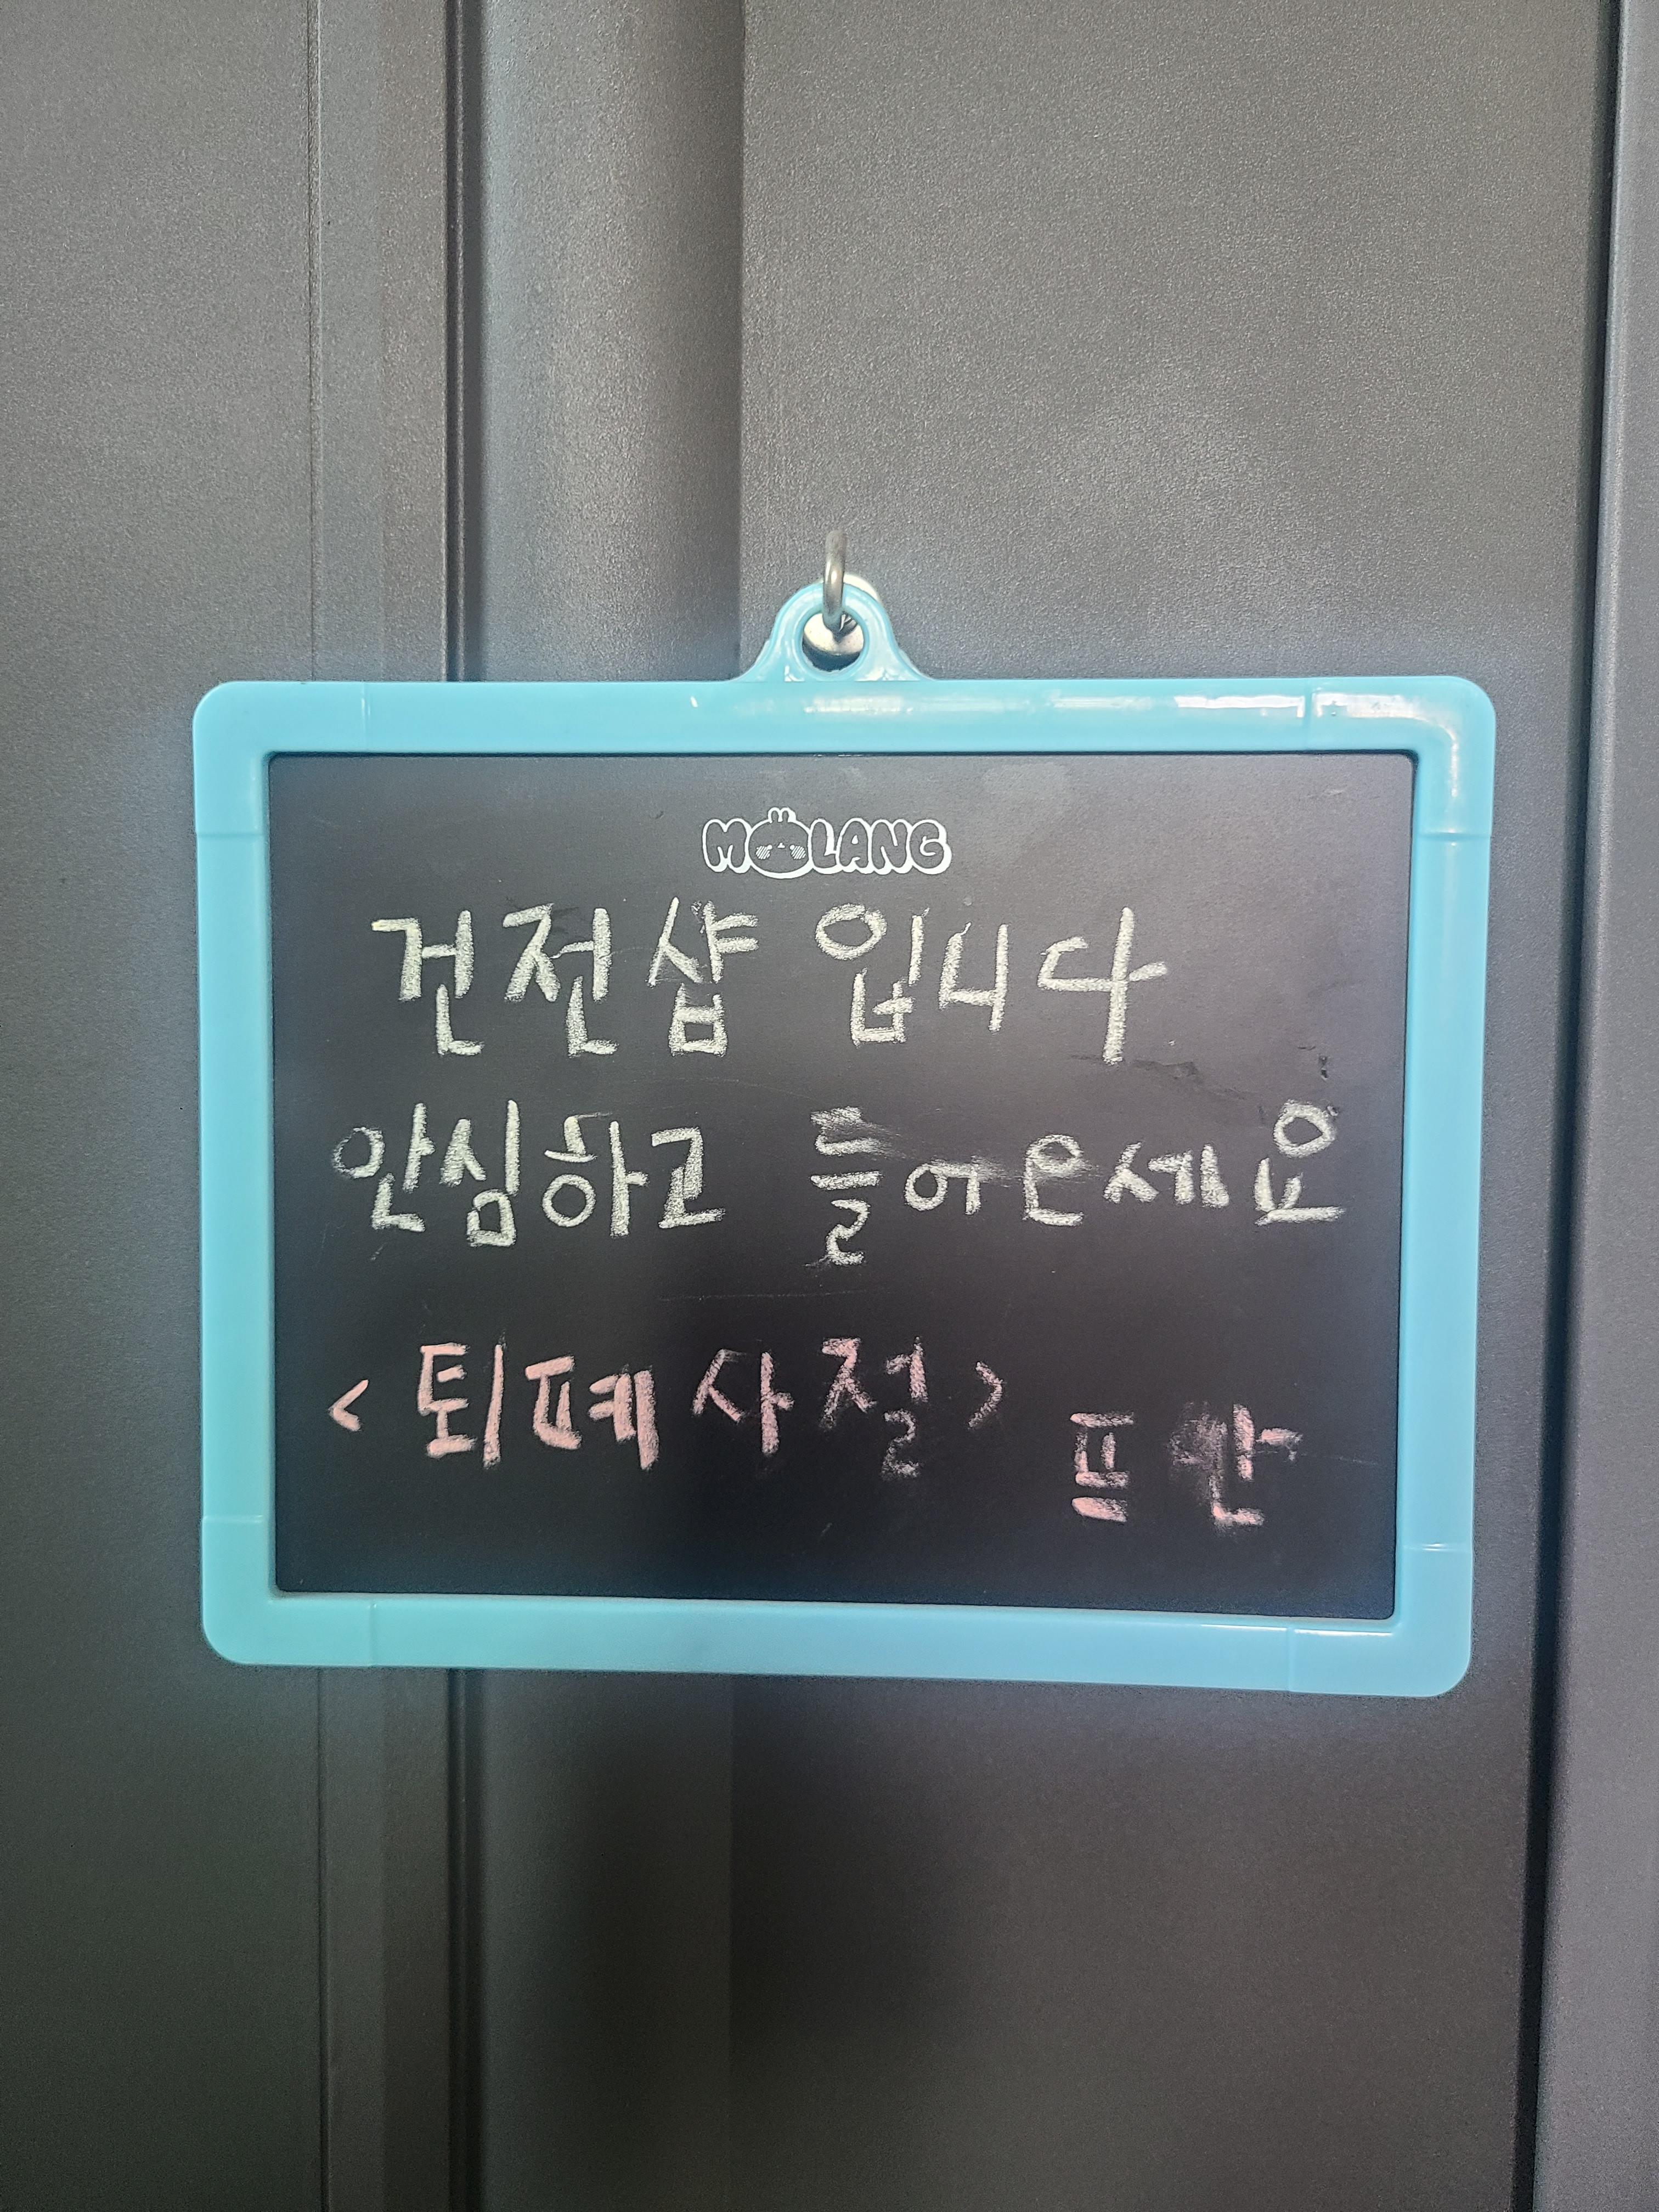 MOLANG
건전샵 입니다
안심하고 들어오세요
<퇴페사절>